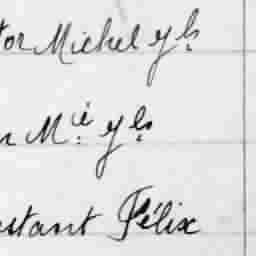 tor Michel y ls
n M.ie y ls
stant Félix